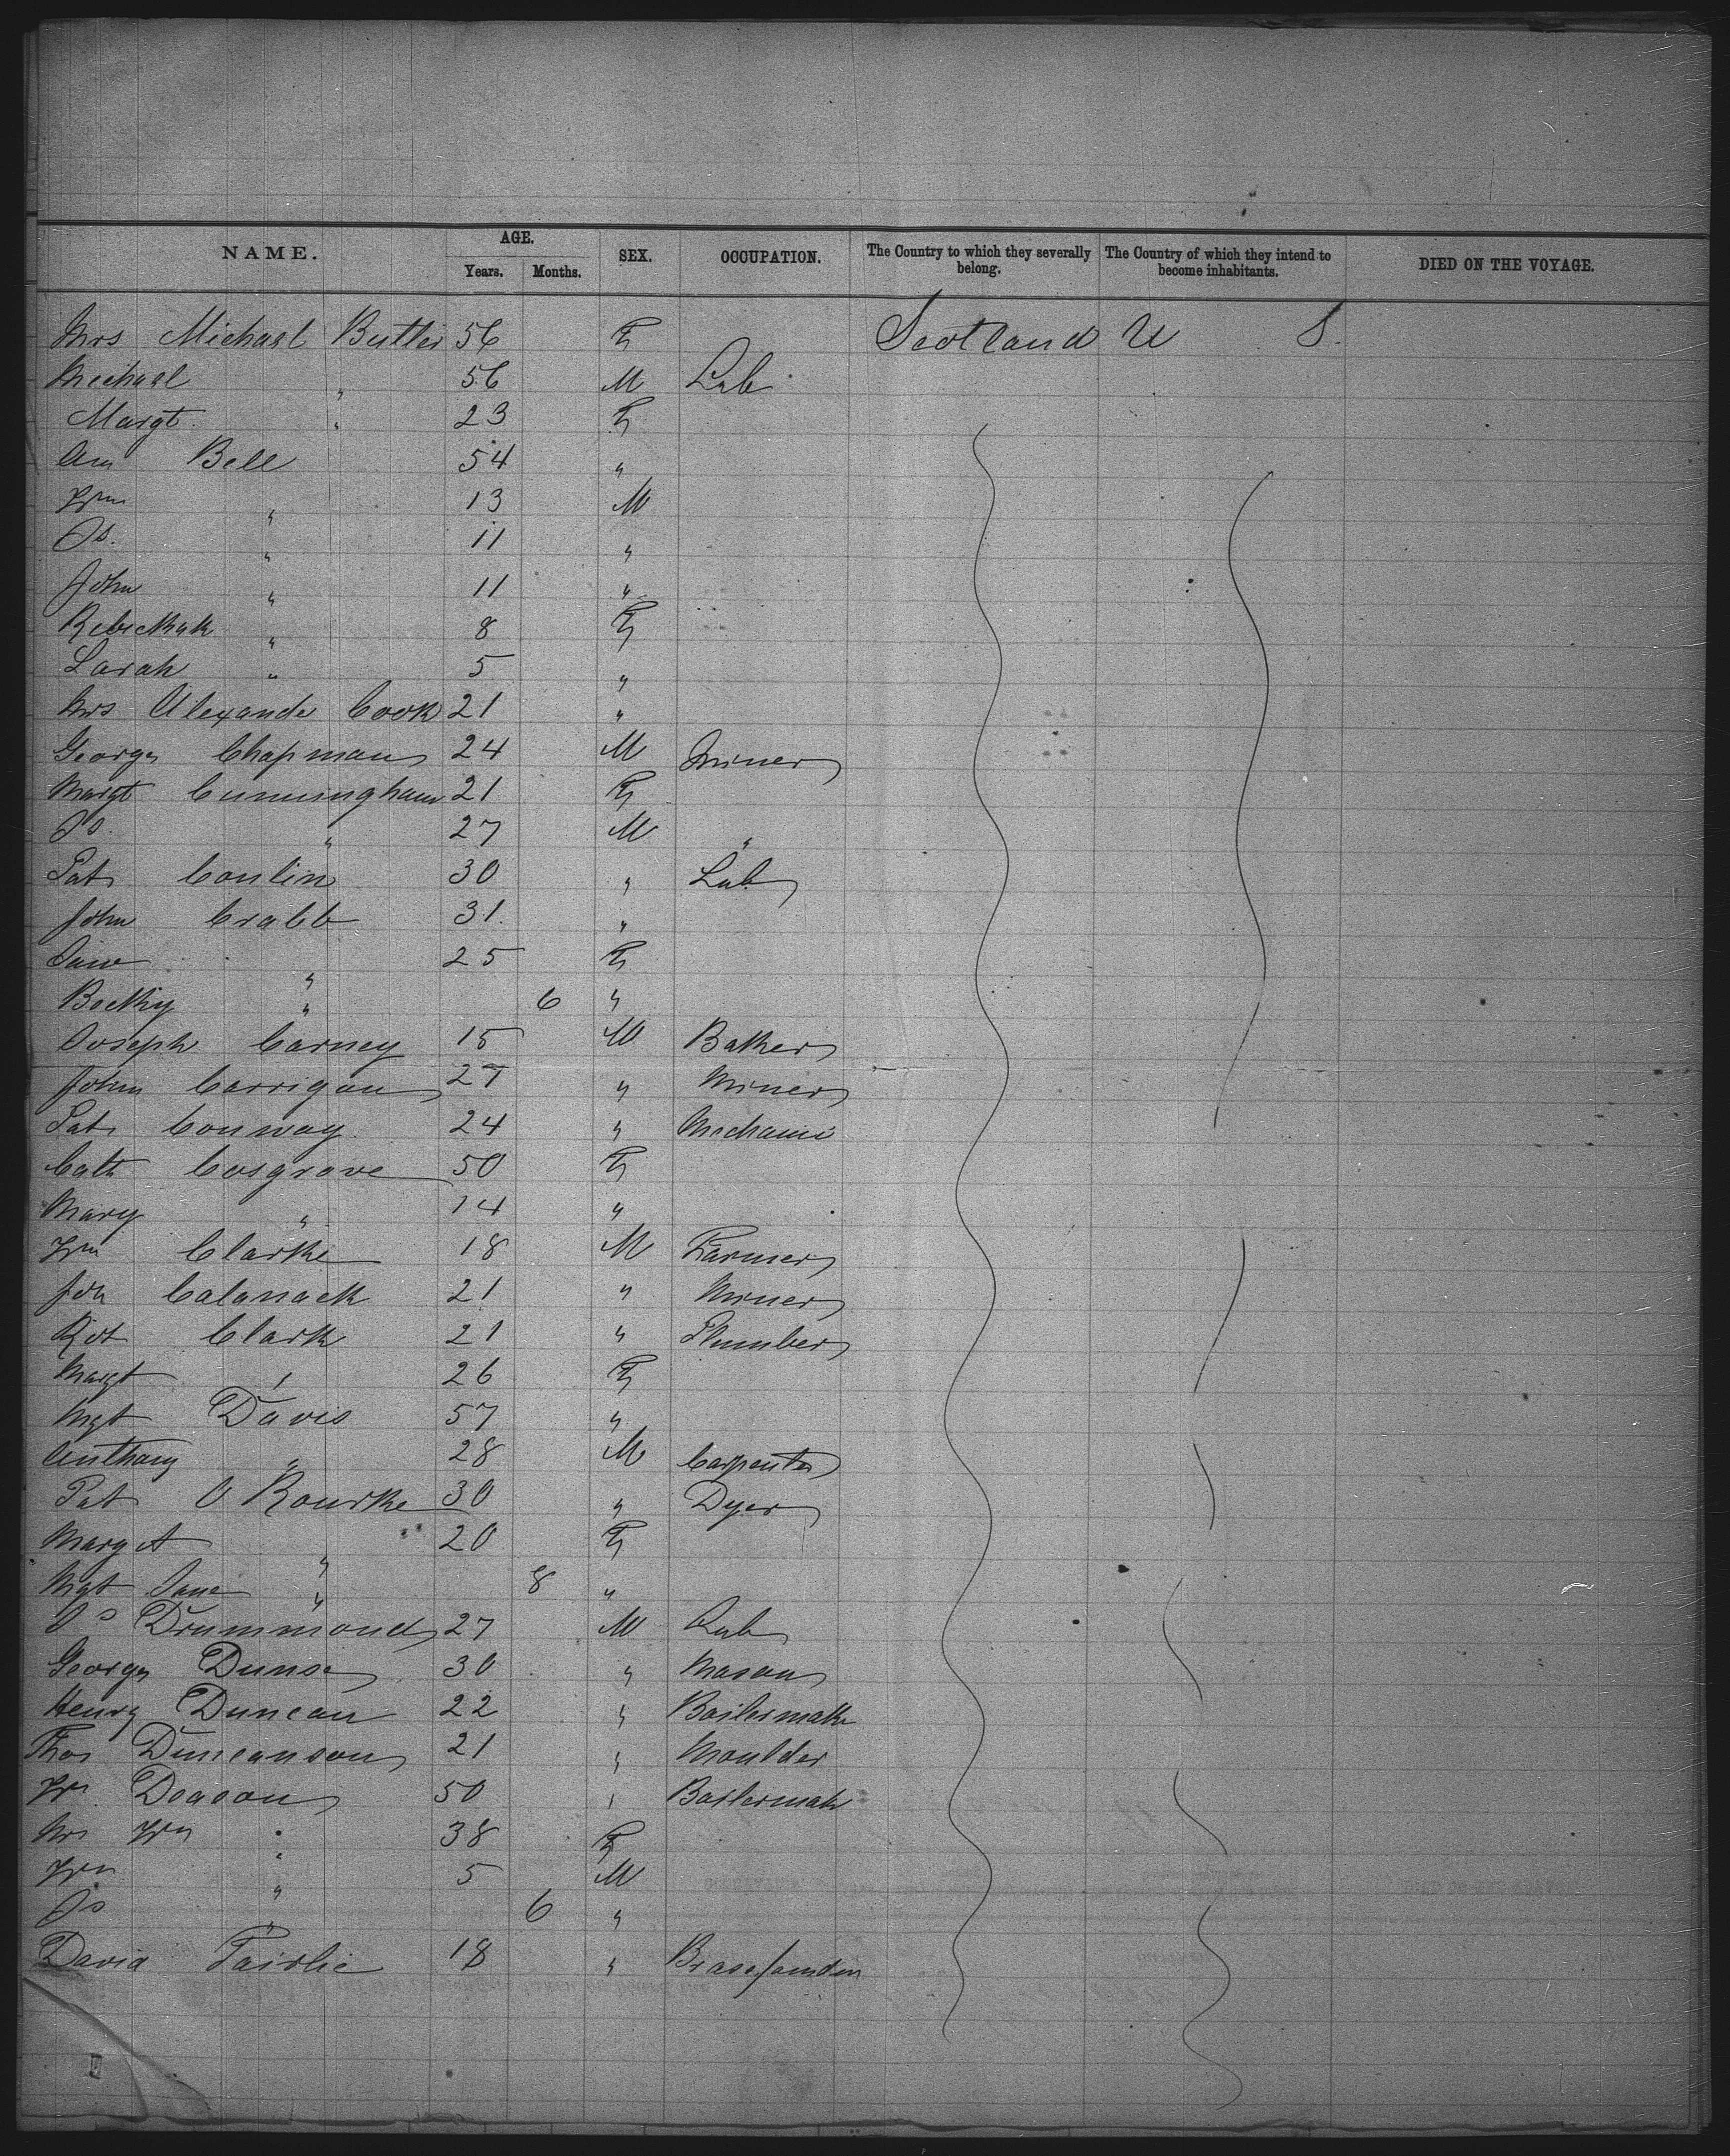 NAME. AGE. SEX. OCCUPATION. The Country to which they severally belong. The Country of which they intend to become inhabitants. DIED ON THE VOYAGE.
Years. Months.
Mrs Michael Butler 56 F Scotland U S.
Michael " 56 M Lab
Margt. " 23 F
Ann Bell 54 "
Wm " 13 M
Js. " 11 "
John " 11 "
Rebeckah " 8 F
Sarah " 5 "
Mrs Alexander Cook 21 "
George Chapman 24 M Miner
Margt Cunningham 21 F
Js. " 27 M "
Pat Conlin 30 " Lab
John Crabb 31. "
Jane " 25 F
Becky " 6 "
Joseph Carney 15 M Baker
John Carrigan 27 " Miner
Pat Conway 24 " Mechanic
Cath Cosgrave 50 F
Mary " 14 "
Wm Clarke 18 M Farmer
Jon 21 " Miner
Rot Clark 21 " Plumber
Margt " 26 F
Mgt Davis 57 "
Anthony " 28 M Carpenter
Pat O Rourke 30 " Dyer
Margt " 20 F
Mgt Jane " 8 "
Js Drummond 27 M Lab
George Dunse 30 " Mason
Henry Duncan 22 " Boilermaker
Thos Duncanson 21 " Moulder
Wm Deacon 50 " Boilermaker
Mrs Wm " 38 F
Wm " 5 M
Js " 6 "
David Fairlie 18 " Brassfounder